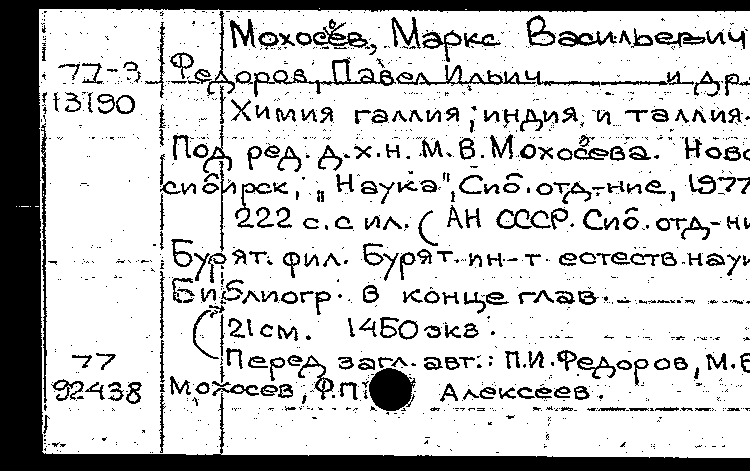 Мохосев, Маркс Васильевич
77-3 Федоров, Павел Ильич и др.
13190 Химия галлия, индия и таллия.
Под ред. д.х.н. М.В.Мохосоева. Ново
сибирск, "Наука", Сиб.отд-ние, 1977
222 с.с ил. (АН СССР. Сиб.отд-ни
Бурят. фил. Бурят. ин-т естеств.наук
Библиогр. в конце глав.
21см. 1450экз.
77 Перед загл. авт.: П.И.Федоров, М.В
92438 Мохосев, Ф.П. Алексеев.